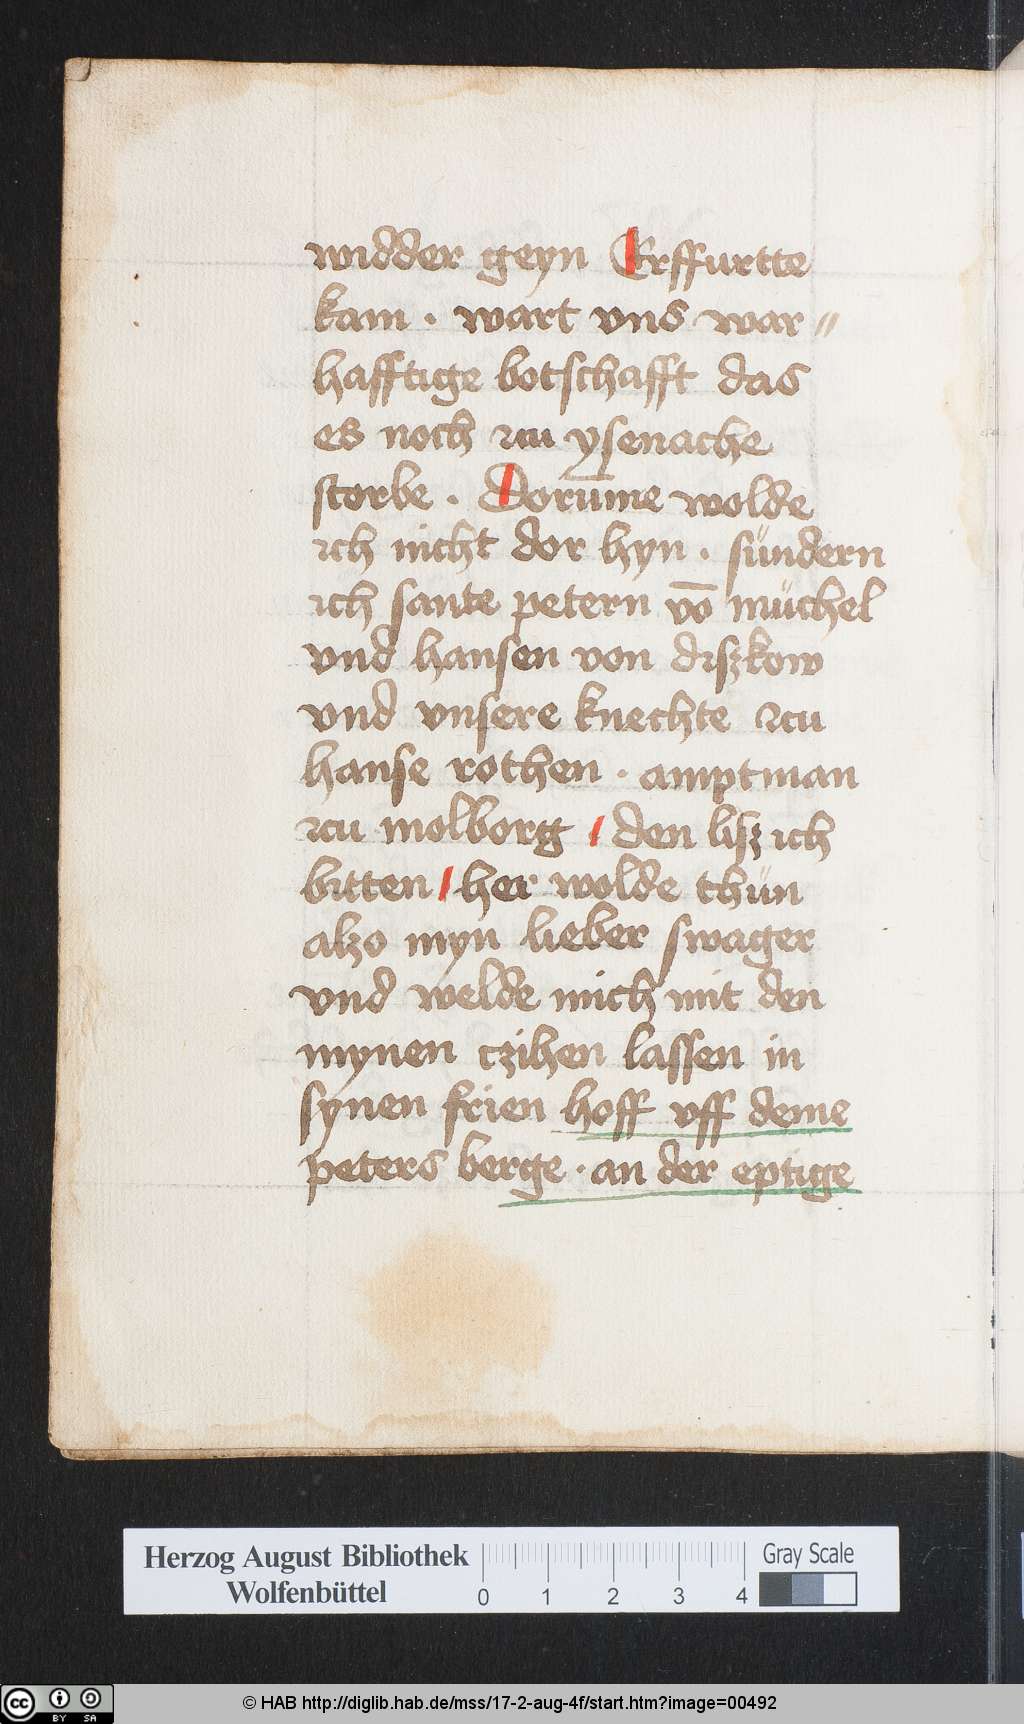 widder geyn Erffurtte
kam · wart vns war⸗
hafftige botschafft das
es noch zcu ysenache
storbe · Dorum̄e wolde
ich nicht dor hyn · sündern
ich sante petern vō müchel
vnd hansen von diszkow
vnd vnsere knechte zcu
hanse rothen · amptman
zcu molborg / den lisz ich
bitten / her wolde thün
alzo myn lieber swager
vnd welde mich mit den
mynen czihen lassen in
synen frien hoff vff deme
peters berge · an der eptige
Herzog August Bibliothek
Wolfenbüttel
0 1 2 3 4
Gray Scale
cc BY SA
© HAB http://diglib.hab.de/mss/17-2-aug-4f/start.htm?image=00492